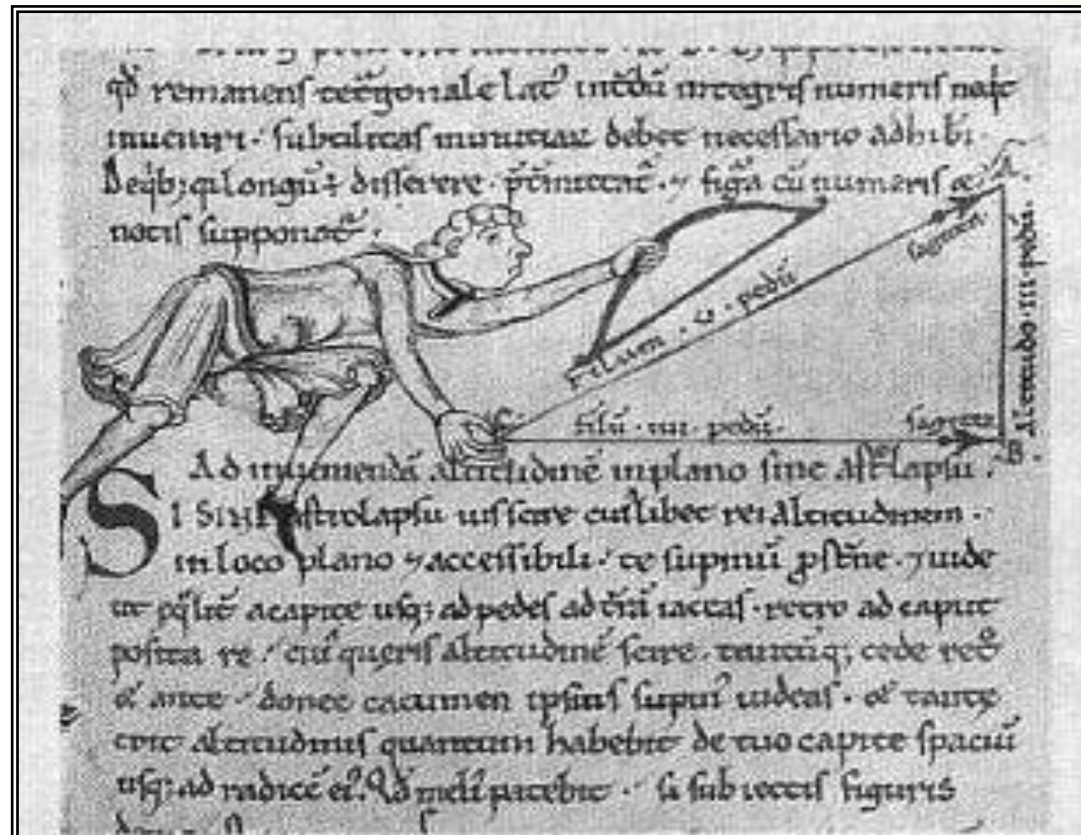 qđ remanens tetͣgonale latꝰ int̄dū integris numeris neq̄t
inueniri · subtilitas minutiaꝝ debet necessario adhib̄i ·
De qͥb; qͥ longū ÷ disserere · p̄t̄mittat̄ · ⁊ figͣa cū numeris &
notis supponat̄ ·
·A·
sagitta
filum · v · pedū
Altitudo · III · pedū ·
filū · IIII · pedū ·
sagitta
·B·
Ad inueniendā altitudinē in plano sine ast̄lapsu ·
SI SINE astrolapsu uis scire cuiꝰlibet rei altitudinem ·
in loco plano ⁊ accessibili · te supinū ꝓst̄ne · ⁊ uide
ut a capite usq; ad pedes ad t̄rā iaceas · retro ad caput
posita re · cuiꝰ queris altitudinē scire · cede ret͛o
& ante · donec cacumen ipsius supinꝰ uideas · & tante
erit altitudinis quantum habebit de tuo capite spaciū
usq; ad radicē eiꝰ · Qđ meliꝰ patebit · si subiectis figuris